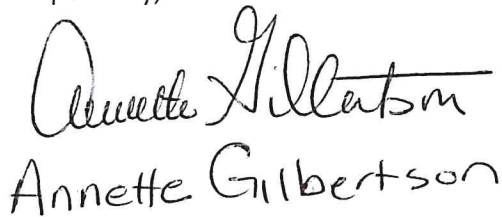 Annette Gilbertson
Annette Gilbertson